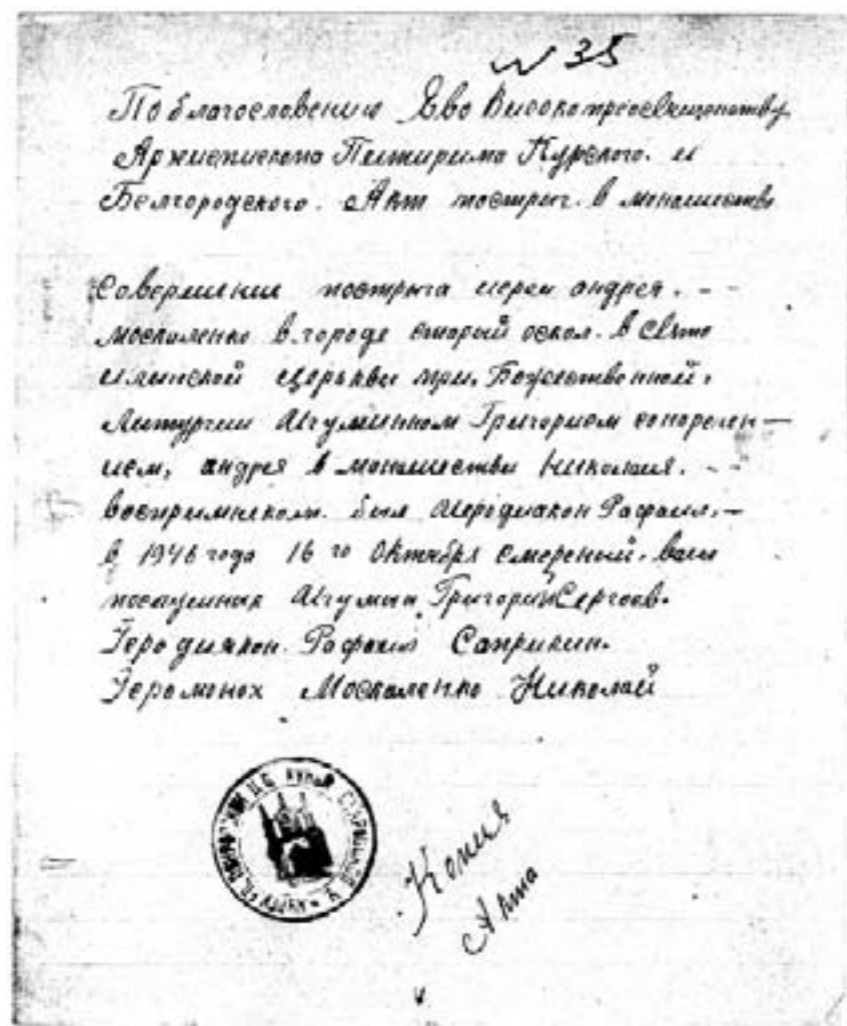 № 35
По благословению Его Високопреосвященству
Архиепископа Питирима Курского. и
Белгородского. Акт постриг. в монашество
Совершение пострига иереи андрея. --
москаленко в. городе старый оскол. в Свято
илинской церькви при. Божественной.
Литургии Игуминном Григорием сонаречен—
ием, андрея в монашестви Николая. --
восприимником. был Иеродиакон Рафаил. —
в 1946 года 16 го Октября смереный. ваш
послушник Игумын Григорий Сергеев.
Іеродиякон. Рафаил Саприкин.
Іеромонах Москаленко Николай
Копия
Акта